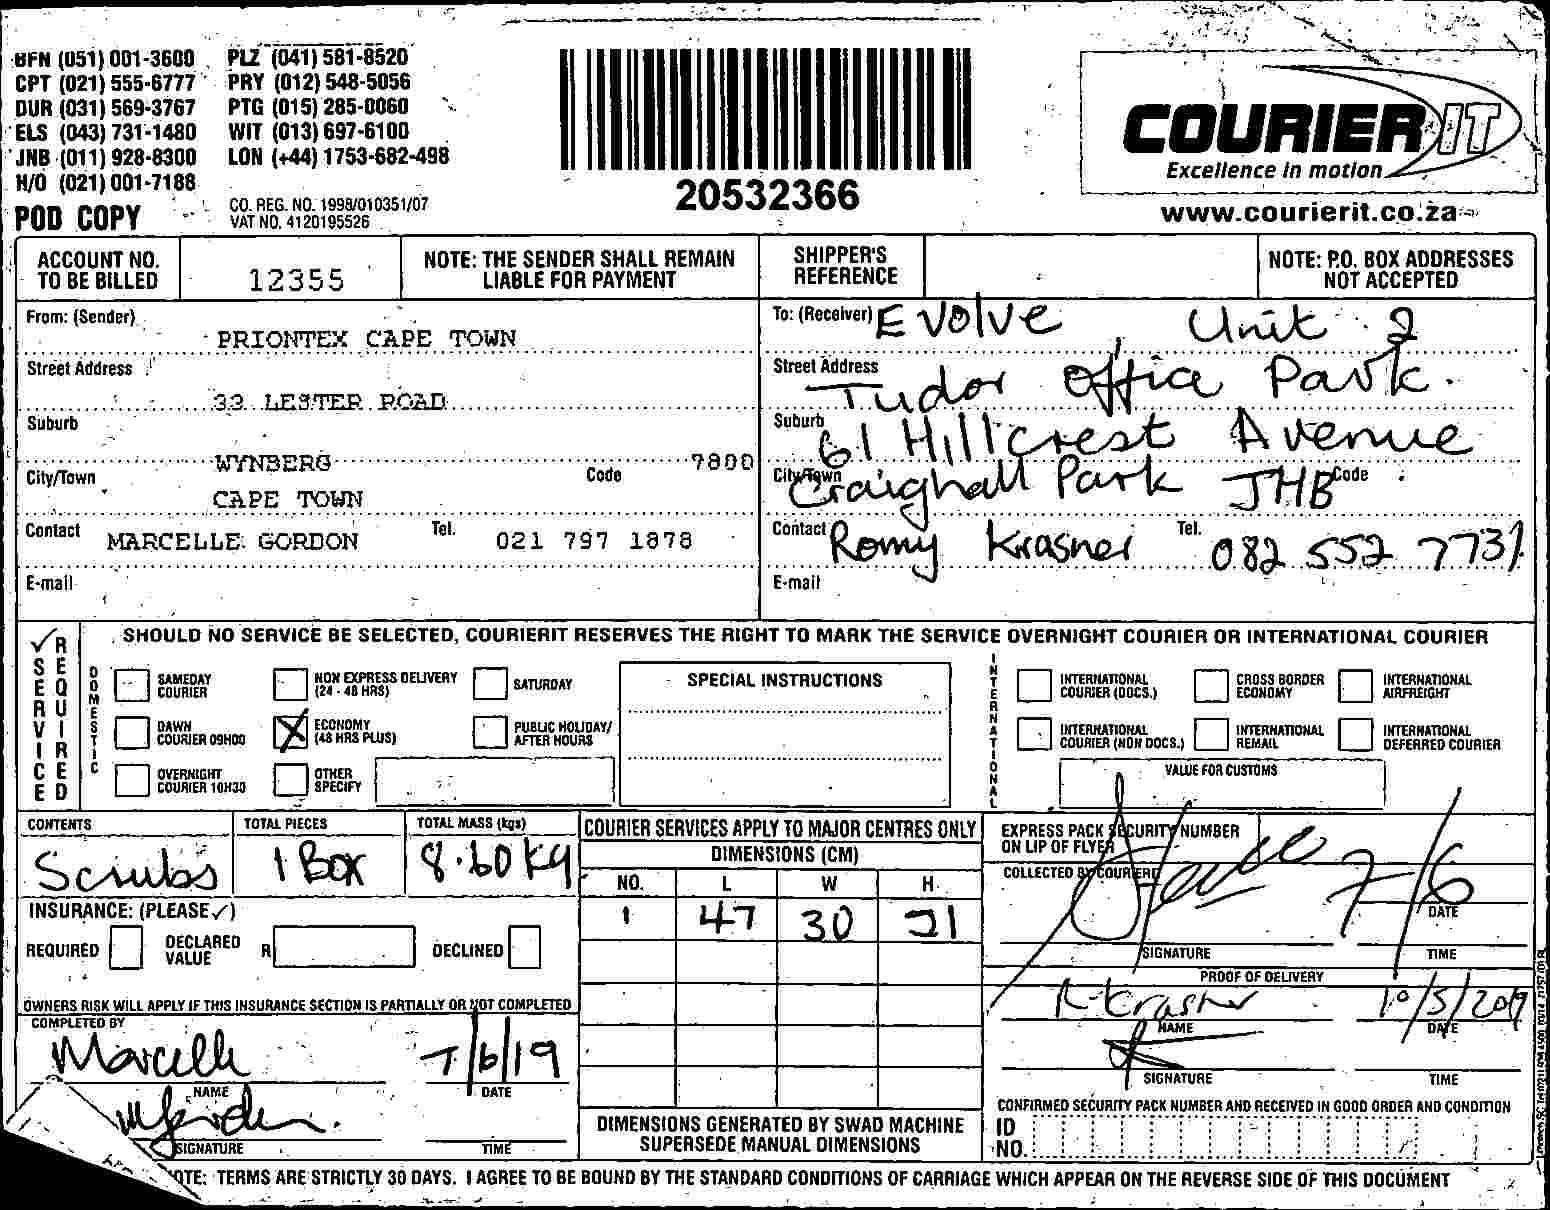 BFN (051) 001-3600 PLZ (041) 581-8520
CPT (021) 555-6777 PRY (012) 548-5056
DUR (031) 569-3767 PTG (015) 285-0060
ELS (043) 731-1480 WIT (013) 697-6100
JNB (011) 928-8300 LON (+44) 1753-682-498
H/O (021) 001-7188
CO. REG. NO. 1998/010351/07
POD COPY VAT NO. 4120195526
20532366
COURIER IT
Excellence in motion
www.courierit.co.za
ACCOUNT NO. TO BE BILLED 12355
NOTE: THE SENDER SHALL REMAIN LIABLE FOR PAYMENT
SHIPPER'S REFERENCE
NOTE: P.O. BOX ADDRESSES NOT ACCEPTED
From: (Sender) PRIONTEX CAPE TOWN
Street Address 33 LESTER ROAD
Suburb WYNBERG
City/Town CAPE TOWN Code 7800
Contact MARCELLE GORDON Tel. 021 797 1878
E-mail
To: (Receiver) Evolve Unit 2
Street Address Tudor Office Park.
Suburb 61 Hillcrest Avenue
City/Town Craighall Park JHB Code
Contact Romy Krasner Tel. 082 552 7731
E-mail
SERVICE REQUIRED
SHOULD NO SERVICE BE SELECTED, COURIERIT RESERVES THE RIGHT TO MARK THE SERVICE OVERNIGHT COURIER OR INTERNATIONAL COURIER
DOMESTIC
SAMEDAY COURIER
NON EXPRESS DELIVERY (24 - 48 HRS)
SATURDAY
DAWN COURIER 09H00
ECONOMY (48 HRS PLUS)
PUBLIC HOLIDAY/ AFTER HOURS
OVERNIGHT COURIER 10H30
OTHER SPECIFY
SPECIAL INSTRUCTIONS
INTERNATIONAL
INTERNATIONAL COURIER (DOCS.)
CROSS BORDER ECONOMY
INTERNATIONAL AIRFREIGHT
INTERNATIONAL COURIER (NON DOCS.)
INTERNATIONAL REMAIL
INTERNATIONAL DEFERRED COURIER
VALUE FOR CUSTOMS
CONTENTS Scrubs
TOTAL PIECES 1 Box
TOTAL MASS (kgs) 8.60 kg
INSURANCE: (PLEASE ✓)
REQUIRED DECLARED VALUE R DECLINED
OWNERS RISK WILL APPLY IF THIS INSURANCE SECTION IS PARTIALLY OR NOT COMPLETED
COMPLETED BY
Marcelle 7/6/19
NAME DATE
SIGNATURE TIME
COURIER SERVICES APPLY TO MAJOR CENTRES ONLY
DIMENSIONS (CM)
NO. L W H
1 47 30 21
DIMENSIONS GENERATED BY SWAD MACHINE SUPERSEDE MANUAL DIMENSIONS
EXPRESS PACK SECURITY NUMBER ON LIP OF FLYER
COLLECTED BY COURIERIT
7/6
DATE
SIGNATURE TIME
PROOF OF DELIVERY
R Krasner 10/5/2019
NAME DATE
SIGNATURE TIME
CONFIRMED SECURITY PACK NUMBER AND RECEIVED IN GOOD ORDER AND CONDITION
ID NO.
NOTE: TERMS ARE STRICTLY 30 DAYS. I AGREE TO BE BOUND BY THE STANDARD CONDITIONS OF CARRIAGE WHICH APPEAR ON THE REVERSE SIDE OF THIS DOCUMENT